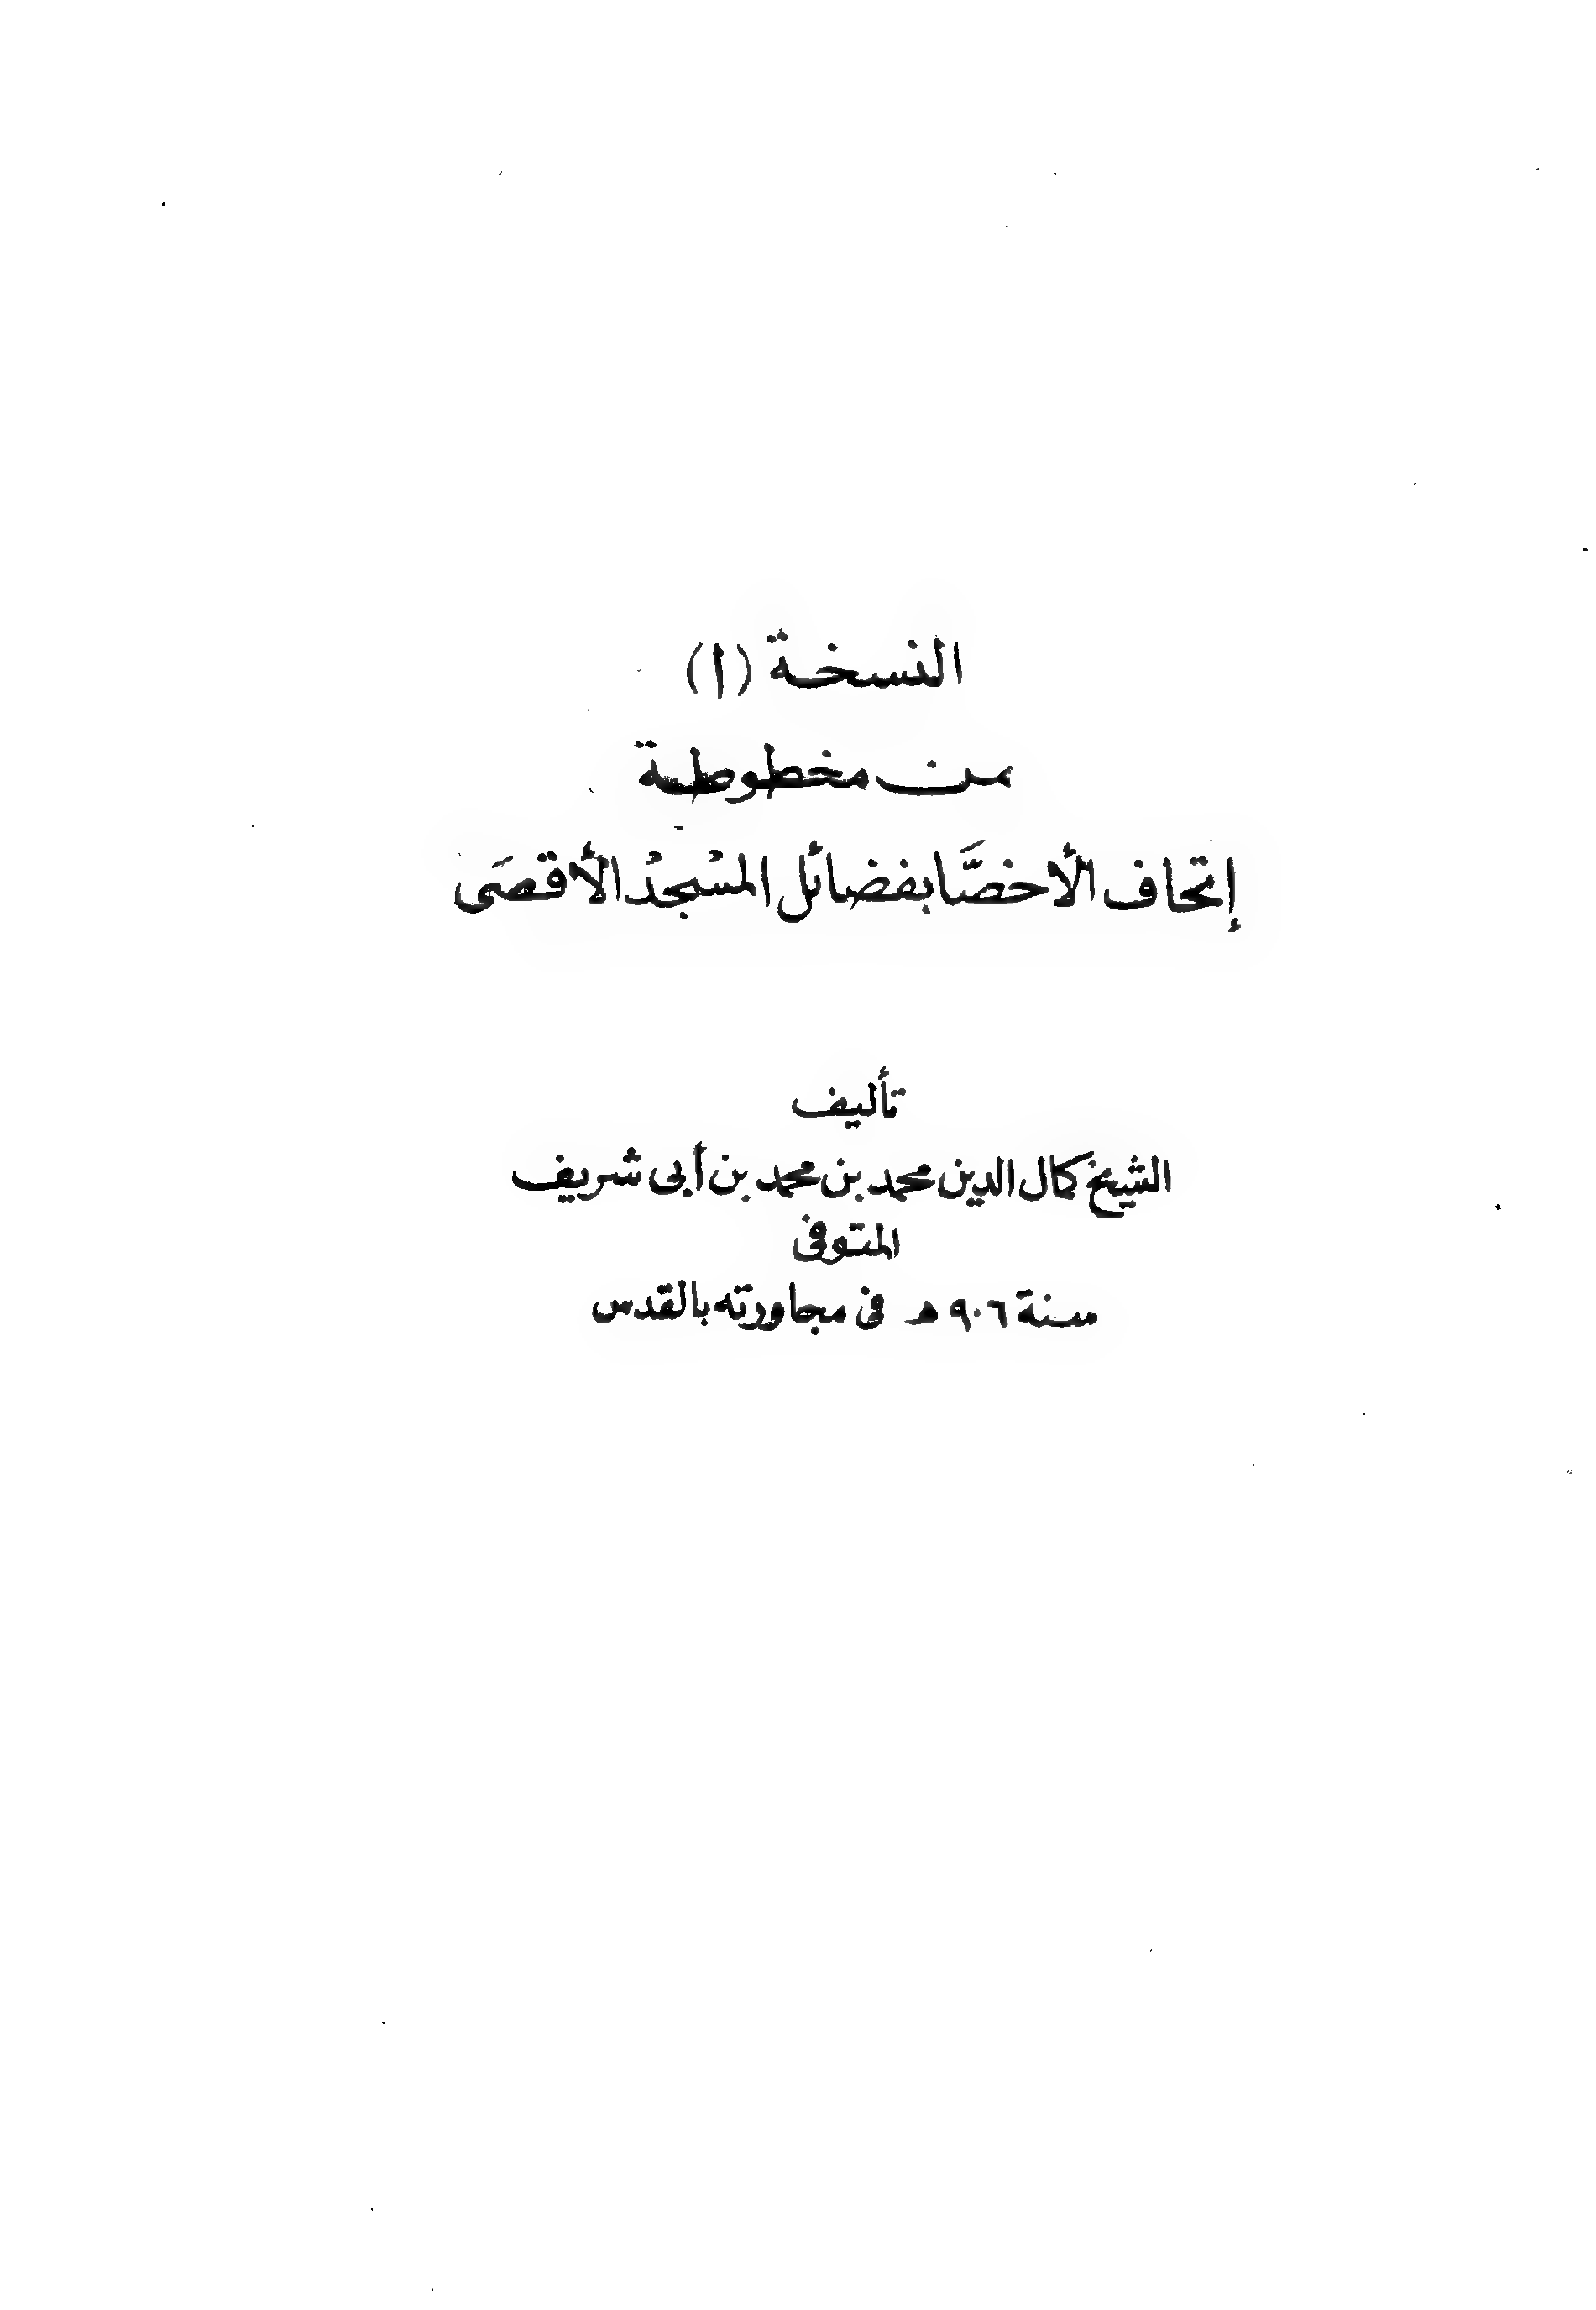 النسخة (ا)
من مخطوطة
إتحاف الأخصَّا بفضائل المسْجدْ الأقصَى
تأليف
الشيخ كمال الدين محمد بن محمد بن أبى شريف
المتوفى
سنة ٩٠٦ هـ فى مجاورته بالقدس